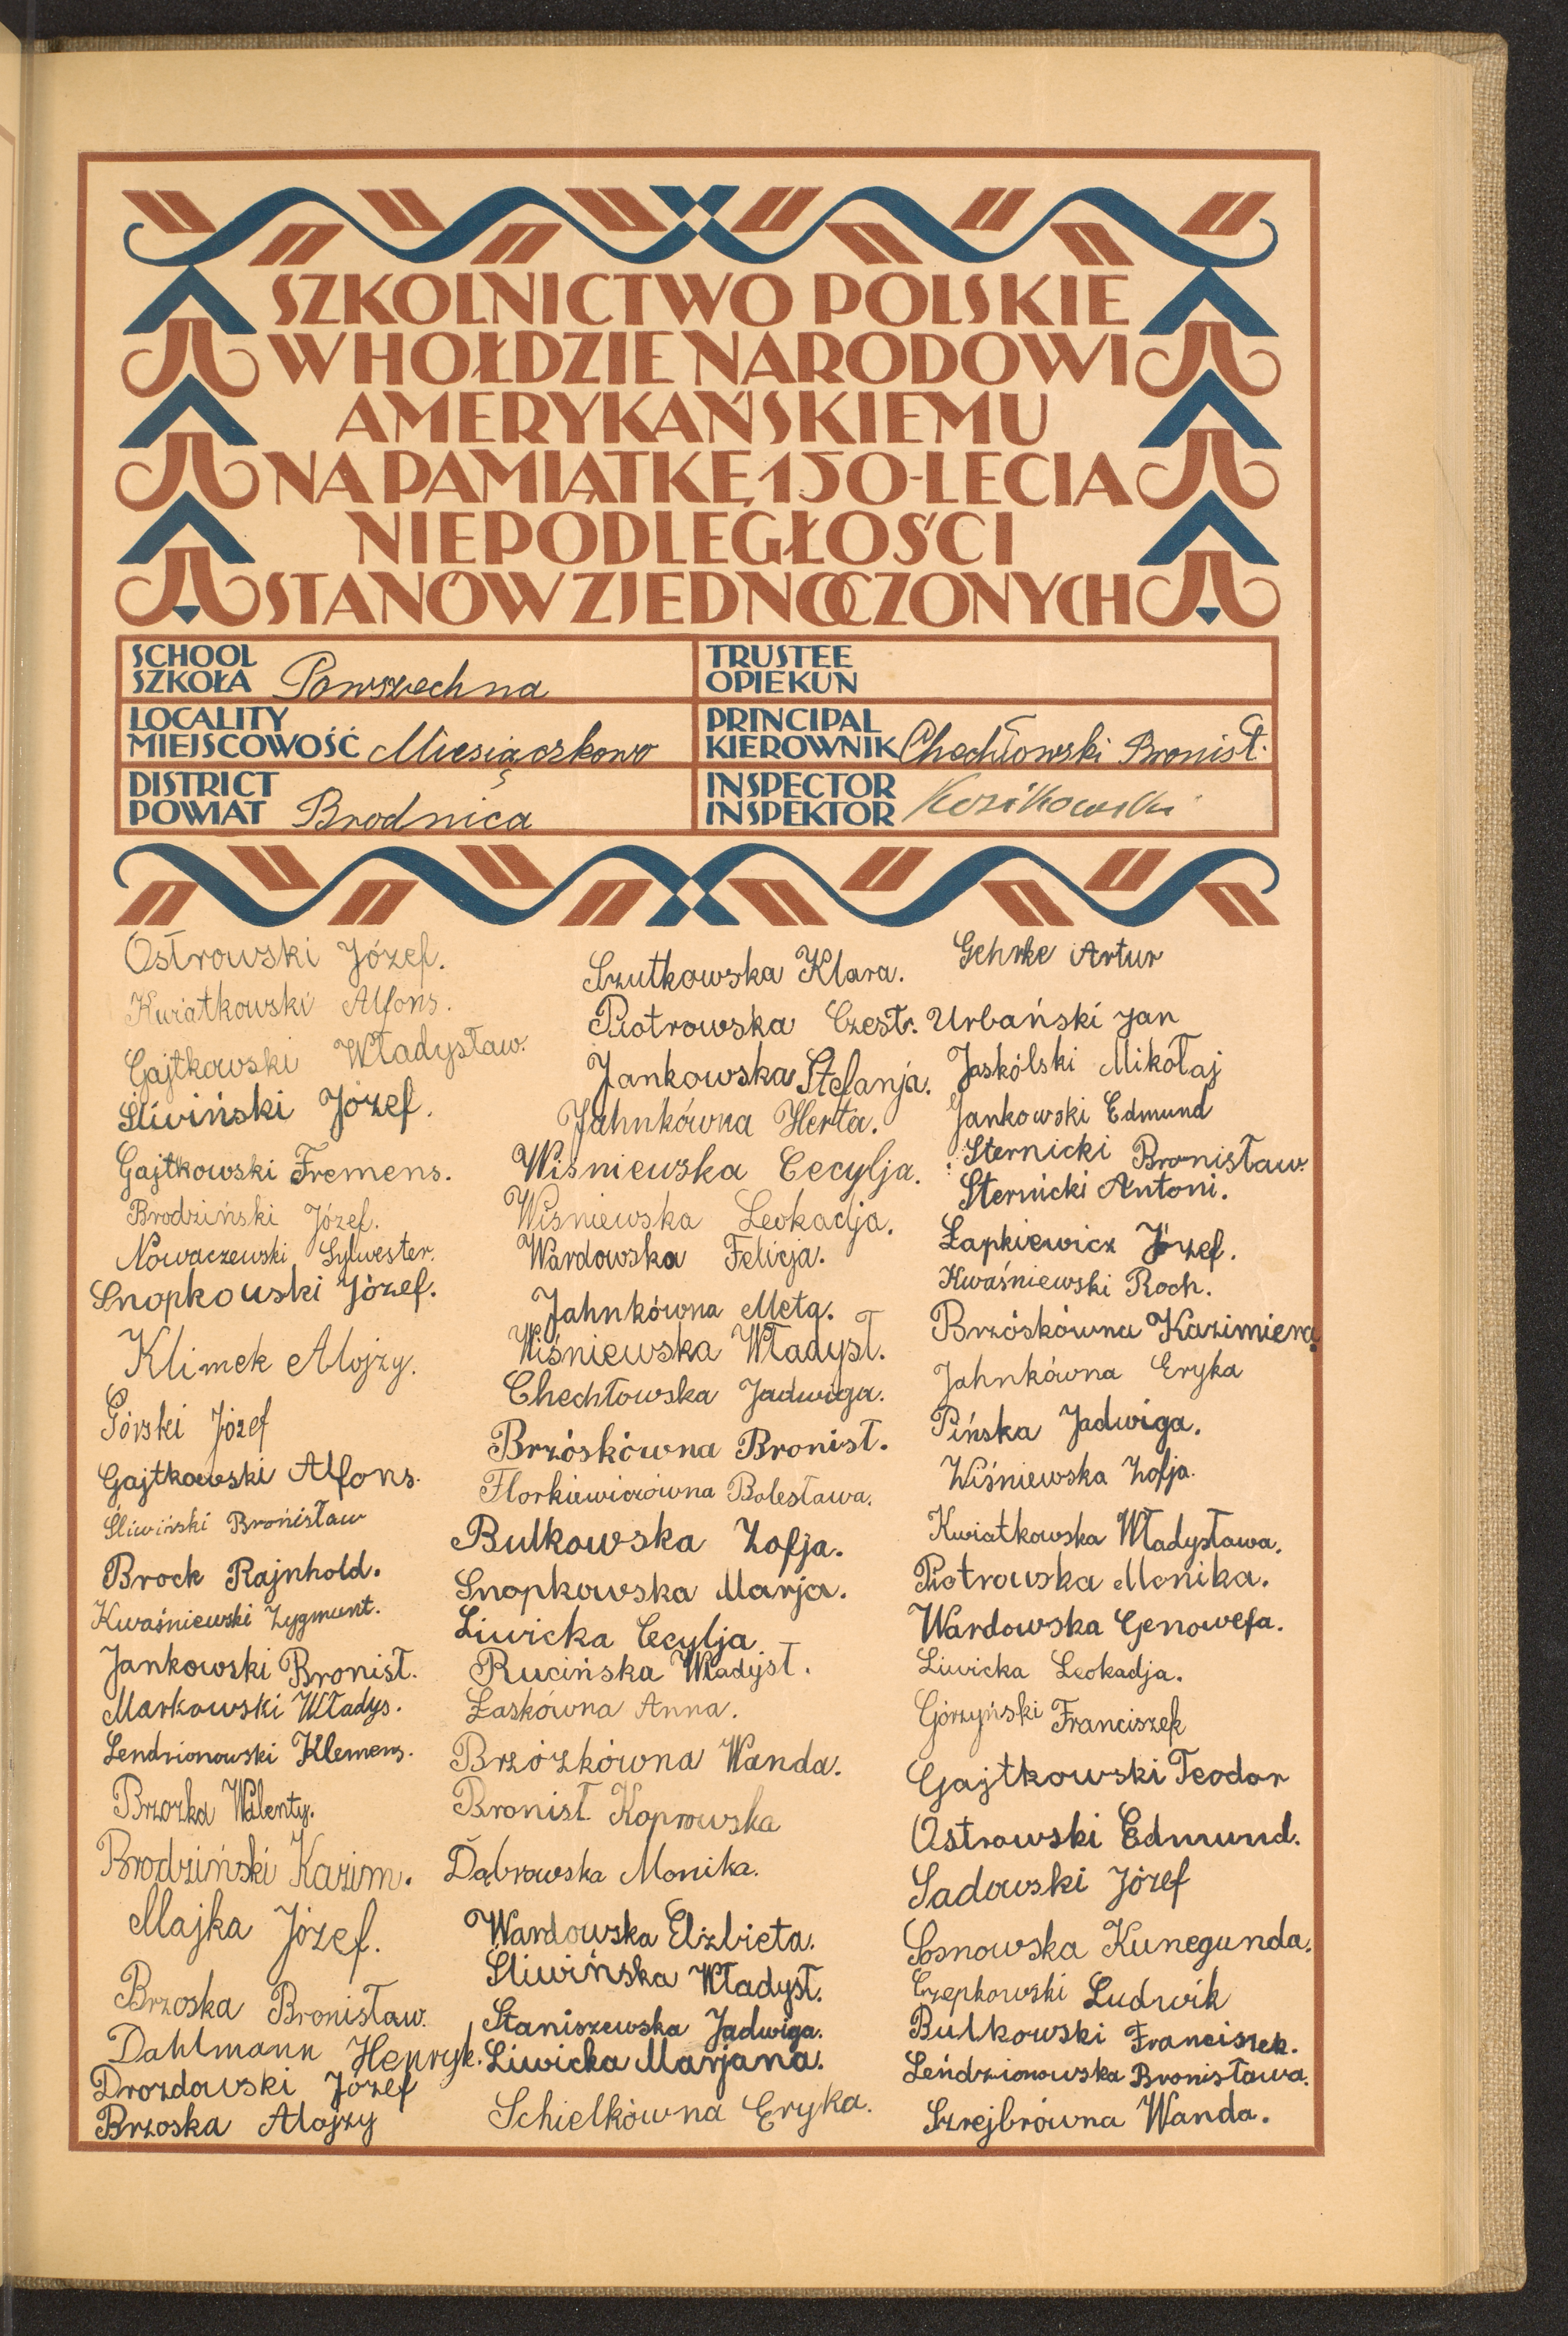 SZKOLNICTWO POLSKIE
W HOŁDZIE NARODOWI
AMERYKAŃSKIEMU
NA PAMIĄTKĘ 150-LECIA
NIEPODLEGŁOŚCI
STANÓW ZJEDNOCZONYCH
SCHOOL
SZKOŁA Powszechna
LOCALITY
MIEJSCOWOŚĆ Miesiączkowo
DISTRICT
POWIAT Brodnica
TRUSTEE
OPIEKUN
PRINCIPAL
KIEROWNIK Chechłowski Bronisł.
INSPECTOR
INSPEKTOR Kozikowski
Ostrowski Józef.
Kwiatkowski Alfons.
Gajtkowski Władysław.
Śliwiński Józef.
Gajtkowski Fremens.
Brodziński Józef.
Nowaczewski Sylwester.
Snopkowski Józef.
Klimek Alojzy.
Górski Józef
Gajtkowski Alfons.
Śliwiński Bronisław
Brock Rajnhold.
Kwaśniewski Zygmunt.
Jankowski Bronisł.
Markowski Władys.
Lendzionowski Klemens.
Brzozka Walenty.
Brodziński Kazim.
Majka Józef.
Brzoska Bronisław.
Dahlmann Henryk.
Drozdowski Józef
Brzoska Alojzy
Szutkowska Klara.
Piotrowska Czesł.
Jankowska Stefanja.
Jahnkówna Herta.
Wiśniewska Cecylja.
Wiśniewska Leokadja.
Wardowska Felicja.
Jahnkówna Meta.
Wiśniewska Władysł.
Chechłowska Jadwiga.
Brzóskówna Bronisł.
Florkiewiczówna Bolesława.
Bulkowska Zofja.
Snopkowska Marja.
Liwicka Cecylja
Rucińska Władysł.
Łaskówna Anna.
Brzózkówna Wanda.
Bronisł Koprowska
Dąbrowska Monika.
Wardowska Elżbieta.
Śliwińska Władysł.
Staniszewska Jadwiga.
Liwicka Marjana.
Schielkówna Eryka.
Gehrke Artur
Urbański Jan
Jaskólski Mikołaj
Jankowski Edmund
Sternicki Bronisław.
Sternicki Antoni.
Łapkiewicz Józef.
Kwaśniewski Roch.
Brzóskówna Kazimiera.
Jahnkówna Eryka
Pińska Jadwiga.
Wiśniewska Zofja.
Kwiatkowska Władysława.
Piotrowska Monika.
Wardowska Genowefa.
Liwicka Leokadja.
Górzyński Franciszek
Gajtkowski Teodor
Ostrowski Edmund.
Sadowski Józef
Sosnowska Kunegunda.
Czepkowski Ludwik
Bulkowski Franciszek.
Leńdzionowska Bronisława.
Szrejbrówna Wanda.